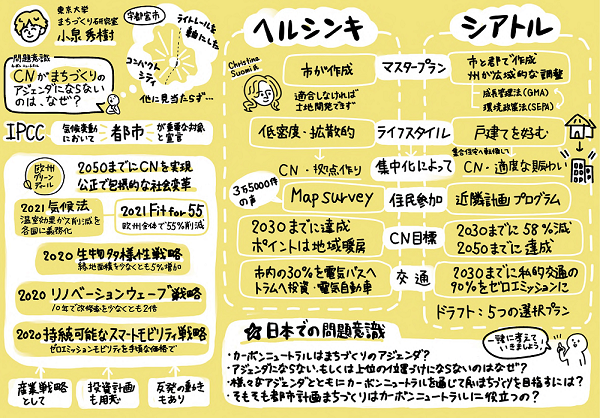 東京大学
まちづくり研究室
小泉秀樹
宇都宮市
ライトレールを
軸にした
コンパクト
シティ
他に見当たらず…
問題意識
CNがまちづくりの
アジェンダにならない
のは、なぜ?
IPCC
気候変動
において
都市
が重要な対象
と宣言
欧州
グリーン
ディール
2050までにCNを実現
公正で包摂的な社会変革
2021 気候法
温室効果ガス削減を
各国に義務化
2021 Fit for 55
欧州全体で55%削減
2020 生物多様性戦略
緑地面積を少なくとも5%増加
2020 リノベーションウェーブ戦略
10年で改修率を少なくとも2倍
2020 持続可能なスマートモビリティ戦略
ゼロエミッションモビリティを手頃な価格で
産業戦略
として
投資計画
も用意
反発の動き
もあり
ヘルシンキ
シアトル
Christina
Suomi
市が作成
マスタープラン
市と郡で作成
州が広域的な調整
適合しなければ
土地開発できず
成長管理法(GMA)
環境政策法(SEPA)
低密度・拡散的
ライフスタイル
戸建てを好む
CN・拠点作り
集中化によって
集合住宅へ転換して
CN・適度な賑わい
3万5000件
の声
Map survey
住民参加
近隣計画プログラム
2030までに達成
ポイントは地域暖房
CN目標
2030までに58%減
2050までに達成
市内の30%を電気バスへ
トラムへ投資・電気自動車
交通
2030までに私的交通の
90%をゼロエミッションに
ドラフト:5つの選択プラン
日本での問題意識
・カーボンニュートラルはまちづくりのアジェンダ?
・アジェンダにならない、もしくは上位の位置づけにならないのはなぜ?
・様々なアジェンダとともにカーボンニュートラルを通じて良いまちづくりを目指すには?
・そもそも都市計画まちづくりはカーボンニュートラルに役立つの?
一緒に考えて
いきましょう!